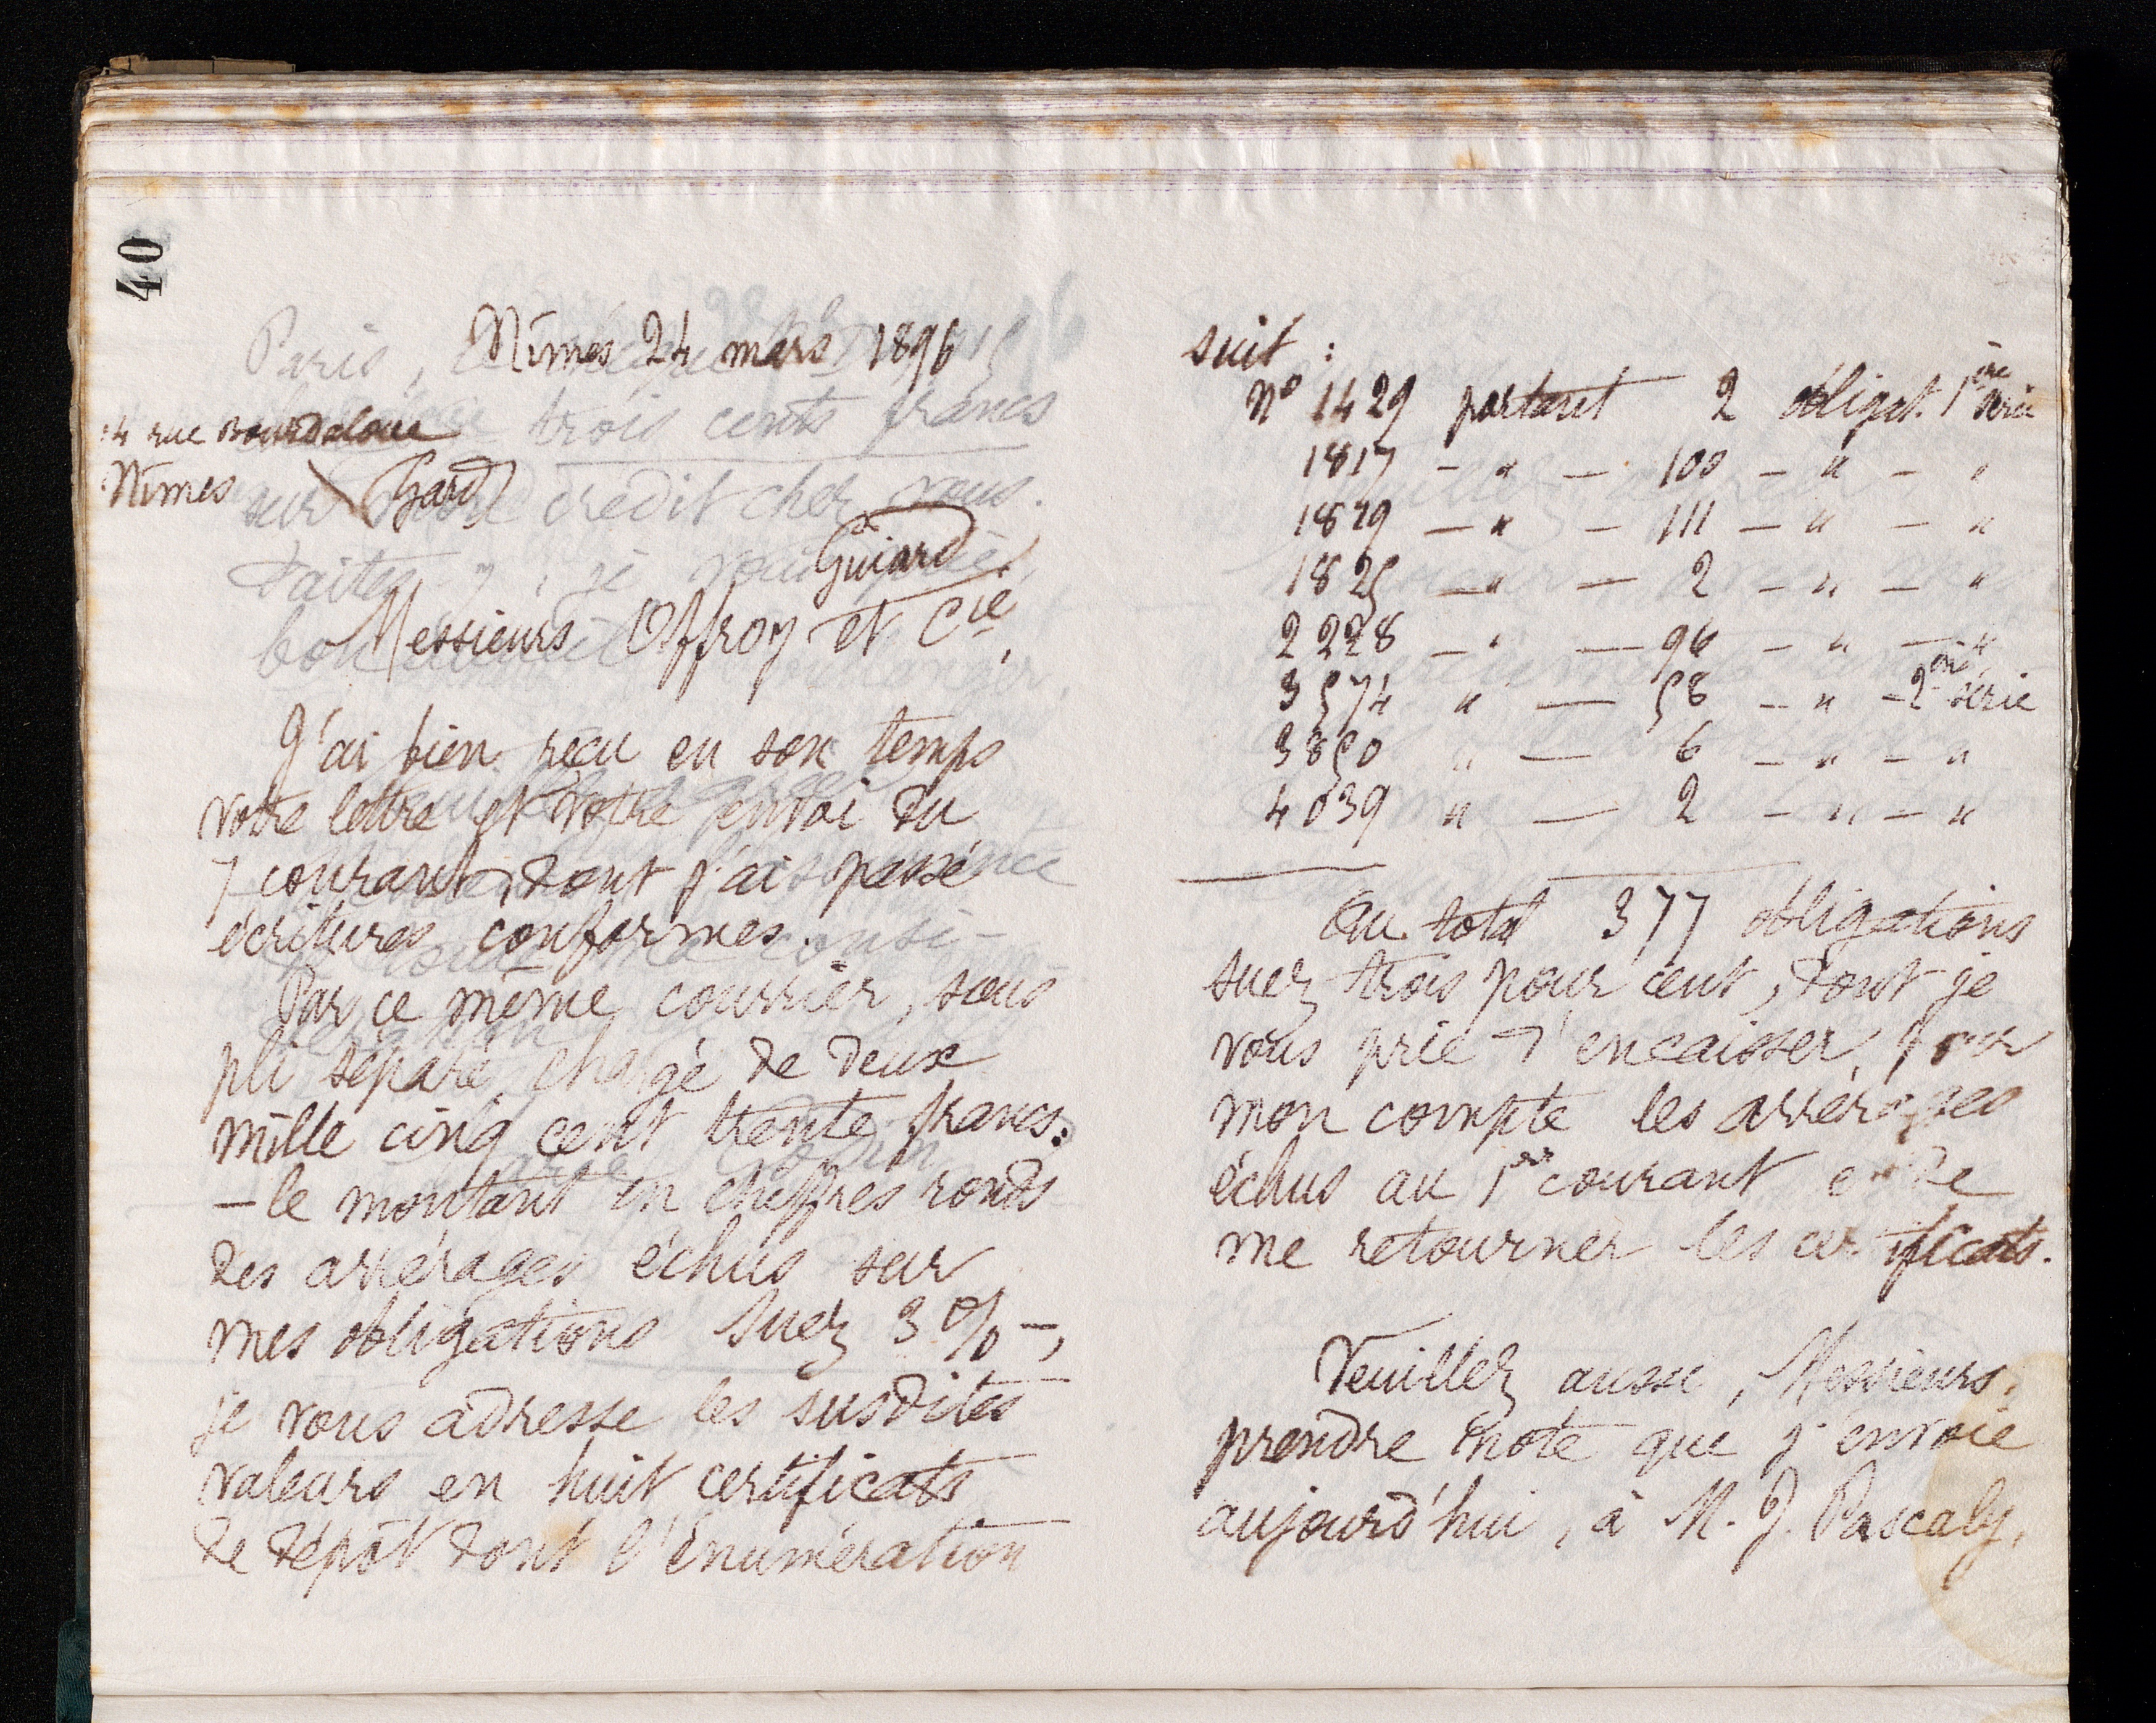 40
Nîmes 24 mars 1896
14 rue Bourdaloue
Nîmes Gard
Guiard
Messieurs Offroy et Cie,
J'ai bien reçu en son temps
votre lettre et votre envoi du
7 courant, dont j'ai passé
écritures conformes.
Par ce même courrier, sous
pli séparé, chargé de deux
mille cinq cent trente francs.
– le montant en chiffres ronds
des arrérages échus sur
mes obligations Suez 3 % –,
je vous adresse les susdites
valeurs en huit certificats
de dépôt dont l'énumération
suit :
No 1429 portant 2 obligat. 1ère série
1817 – " – 100 – " – "
1829 – " – 111 – " – "
1825 – " – 2 – " – "
2228 – " – 96 – " – "
3574 " – 58 – " – 2me série
3850 " – 6 – " – "
4039 " – 2 – " – "
Au total 377 obligations
suez trois pour cent, dont je
vous prie d'encaisser, pour
mon compte les arrérages
échus au 1er courant et de
me retourner les certificats.
Veuillez aussi, Messieurs,
prendre note que j'envoie
aujourd'hui, à M. J. Pascaly,